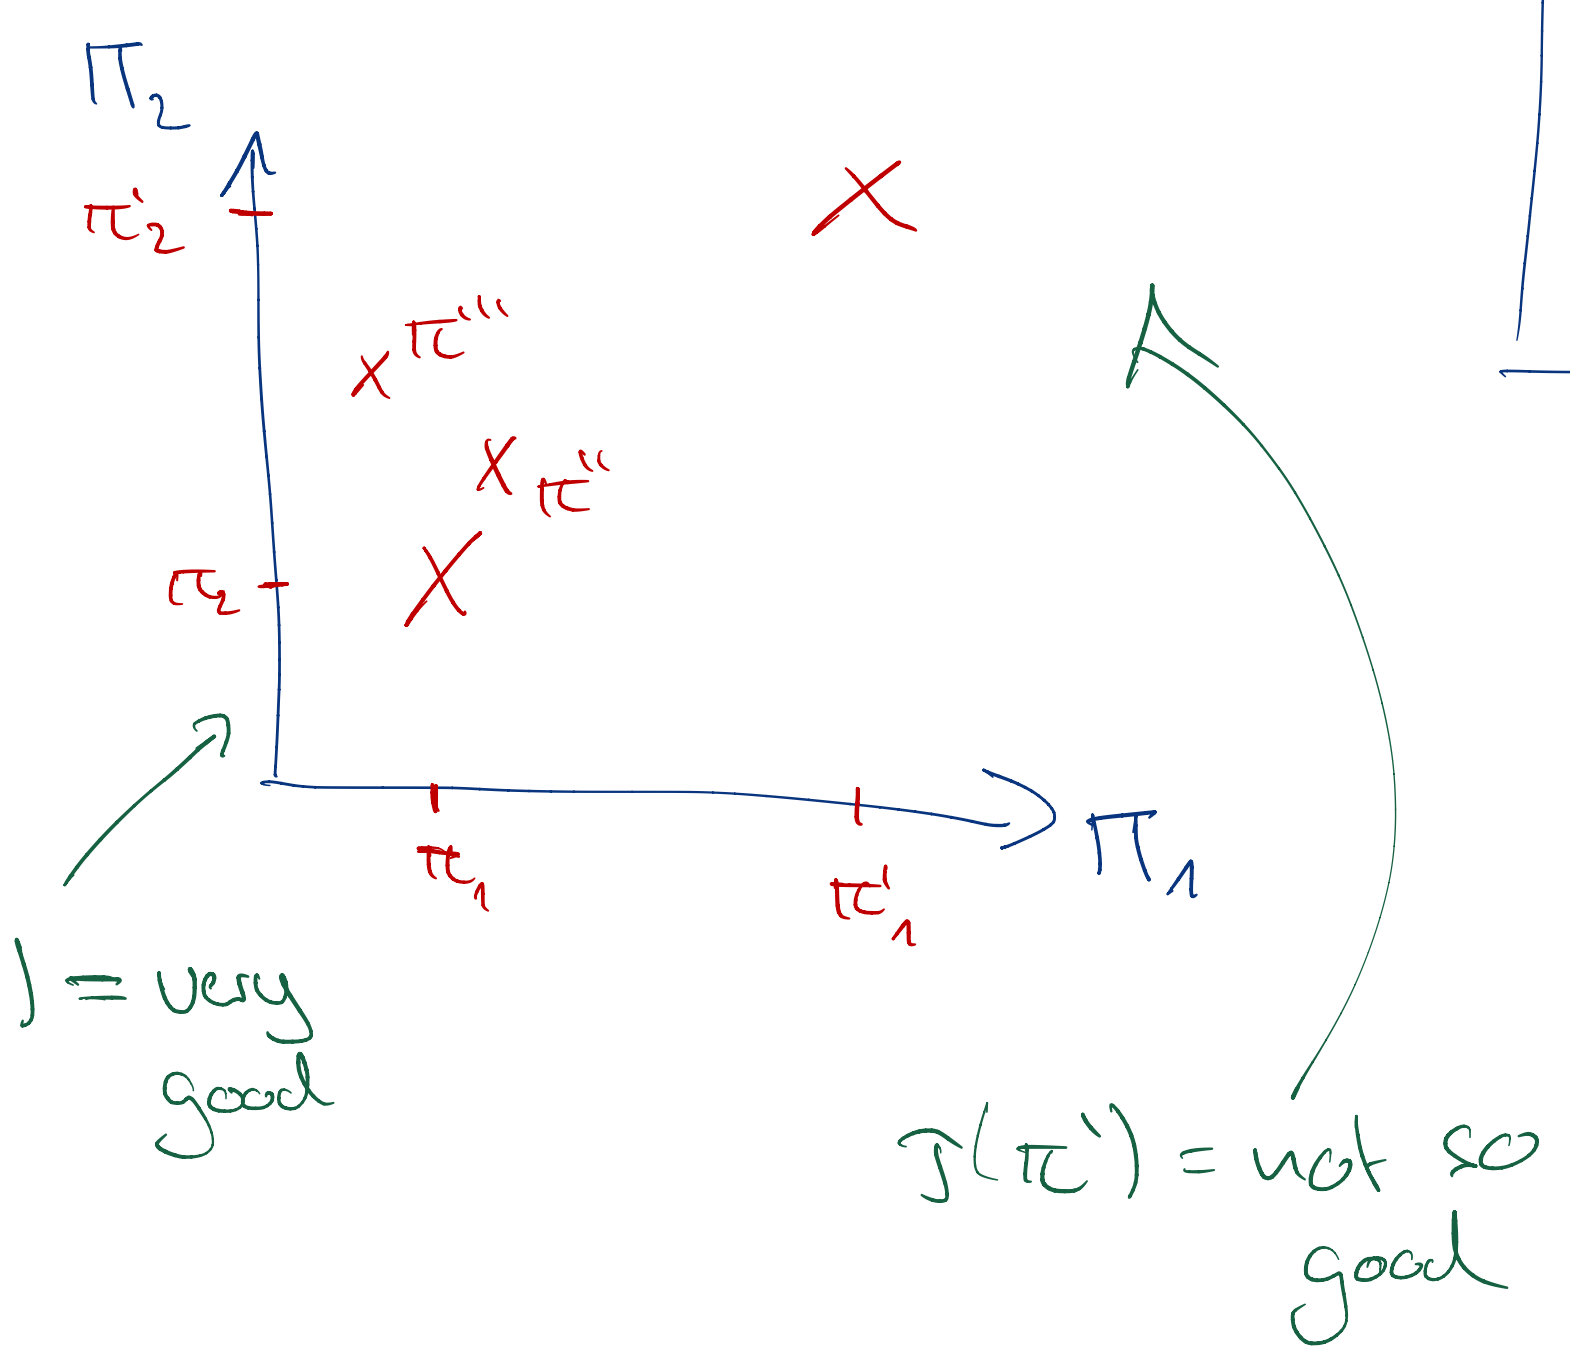 Π₂
π'₂
π'''
π''
π₂
Π₁
π₁
π'₁
) = very
good
J(π') = not so
good